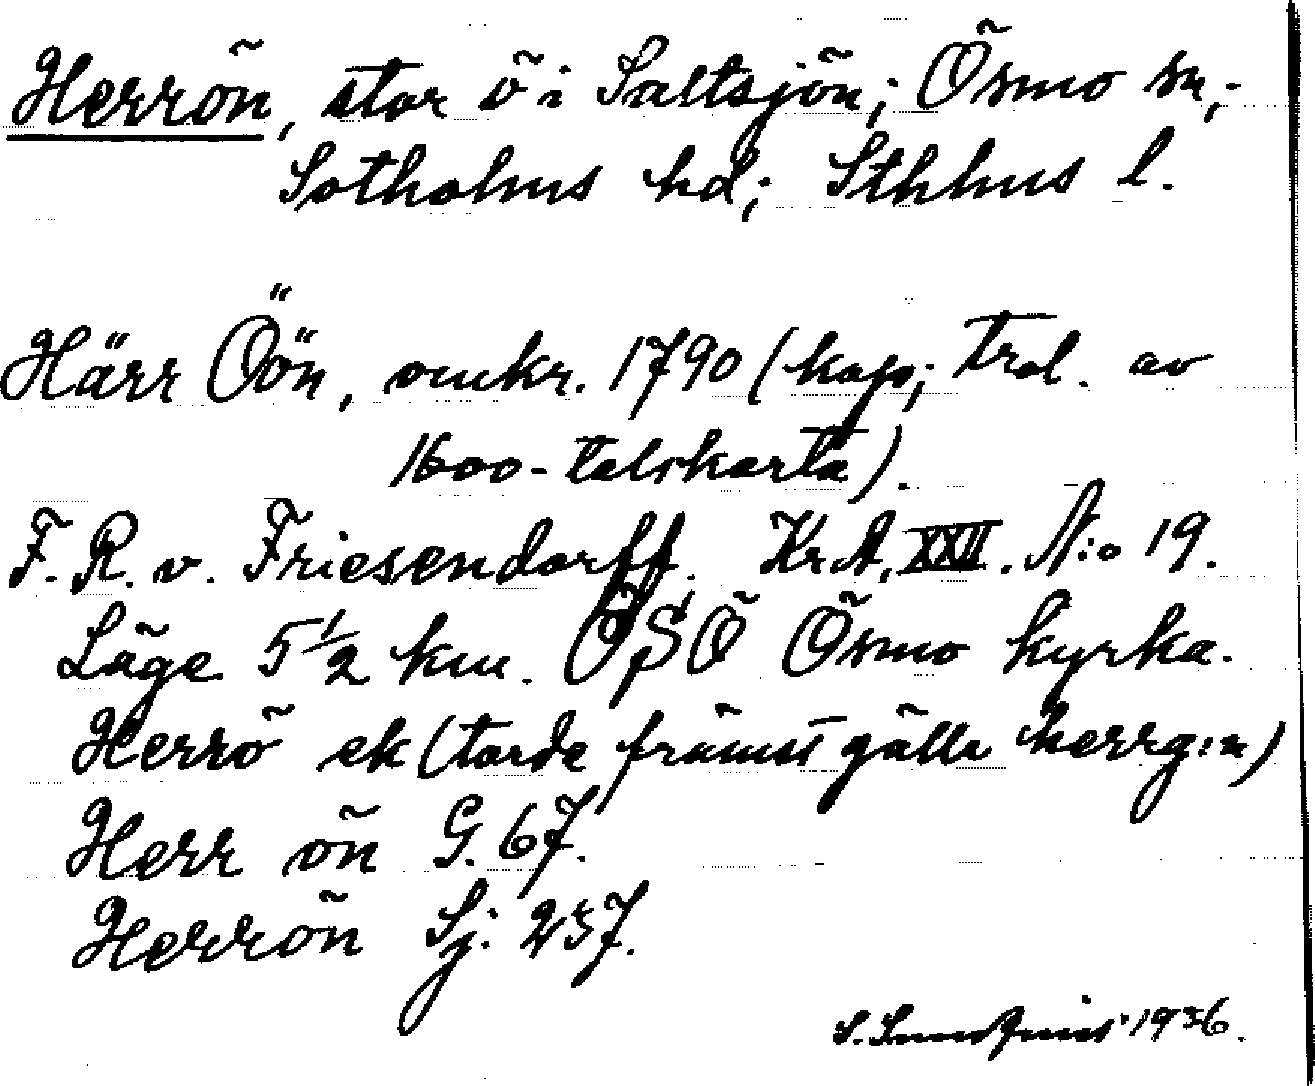 Herrön, stor ö i Saltsjön; Ösmo sn,-
Sotholms hd; Sthlms l.
Härr Öön, omkr. 1790 (kop; trol. av
1600-talskarta).
F. R. v. Friesendorff. Kr.A. XXII. N:o 19.
Läge 5 1/2 km. OSO Ösmo kyrka.
Herrö ek (torde främst gälla herrg:n)
Herr ön G. 67.
Herrön Sj. 237.
S. Sundquist 1936.